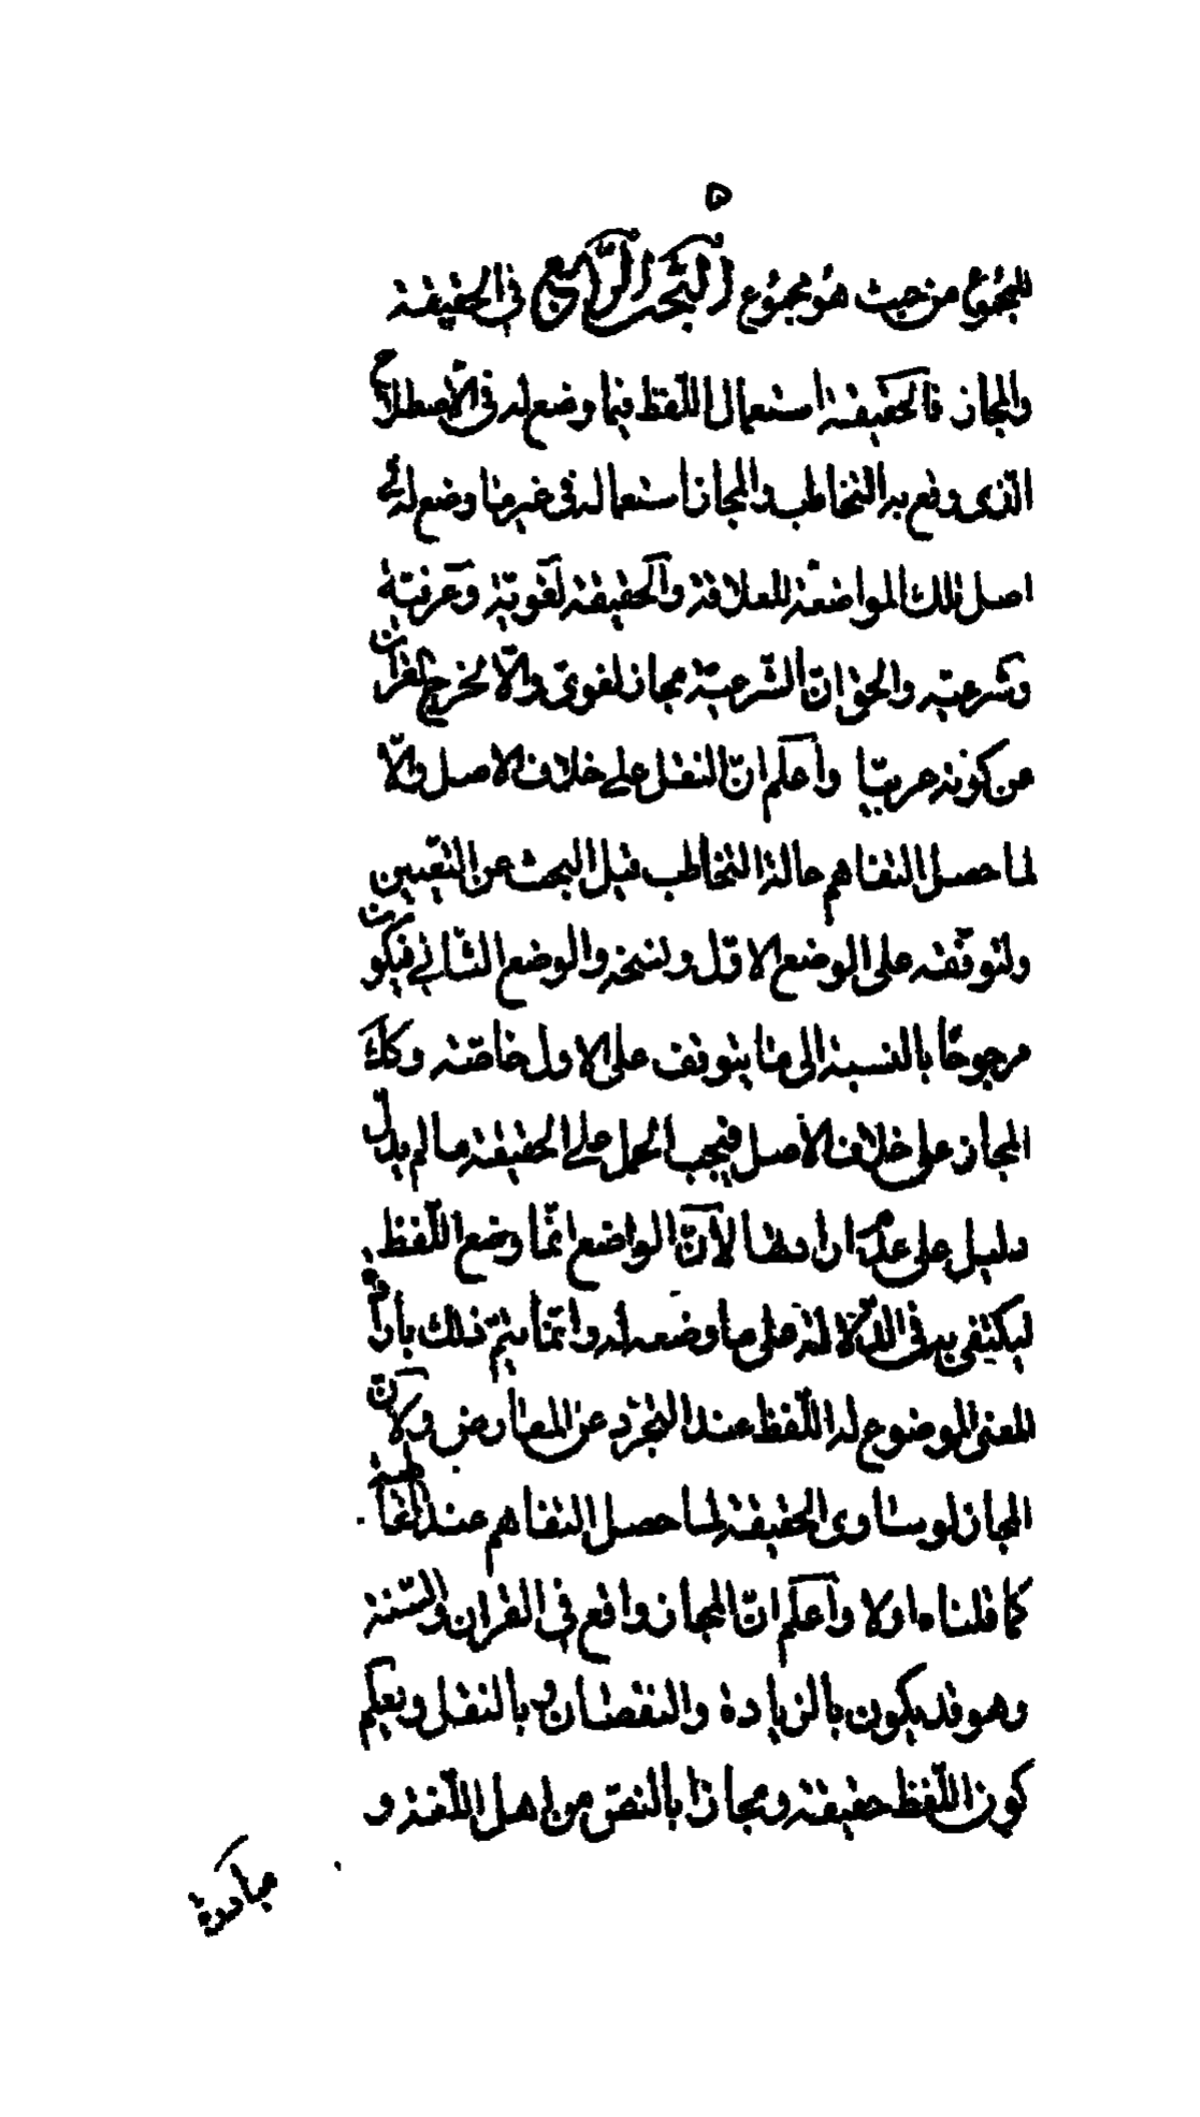 ۵
للمجموع من حيث هو مجموع البحث الرّابع في الحقيقة
والمجاز فالحقيقة استعمال اللّفظ فيما وضع له في الاصطلاح
الّذى وقع به التخاطب والمجاز استعماله في غير ما وضع له في
اصل تلك المواضعة للعلاقة والحقيقة لغويّة وعرفيّة
وشرعيّة والحق انّ الشّرعيّة مجاز لغوىّ والّا لخرج القران
عن كونه عربيّا واعلم انّ النقل على خلاف الاصل والّا
لما حصل التفاهم حالة التخاطب قبل البحث عن التعيين
ولتوقّفه على الوضع الاوّل ونسخه والوضع الثّاني فيكون
مرجوحًا بالنسبة الى ما يتوقف على الاول خاصّته وكك
المجاز على خلاف الاصل فيجب الحمل على الحقيقة ما لم يدلّ
دليل على عدم ارادتها لانّ الواضع انّما وضع اللّفظ
ليكتفى به في الدّلالة على ما وضعه له وانّما يتمّ ذلك بارادة
المعنى الموضوع له اللّفظ عند التجرّد عن المعارض ولانّ
المجاز لو ساوى الحقيقة لما حصل التفاهم عند المخاطبة
كما قلناه اولا واعلم انّ المجاز واقع في القران والسّنة
وهو قد يكون بالزيادة والنقصان وبالنقل ويعلم
كون اللّفظ حقيقة ومجازا بالنصّ من اهل اللّغة و
مبادرة